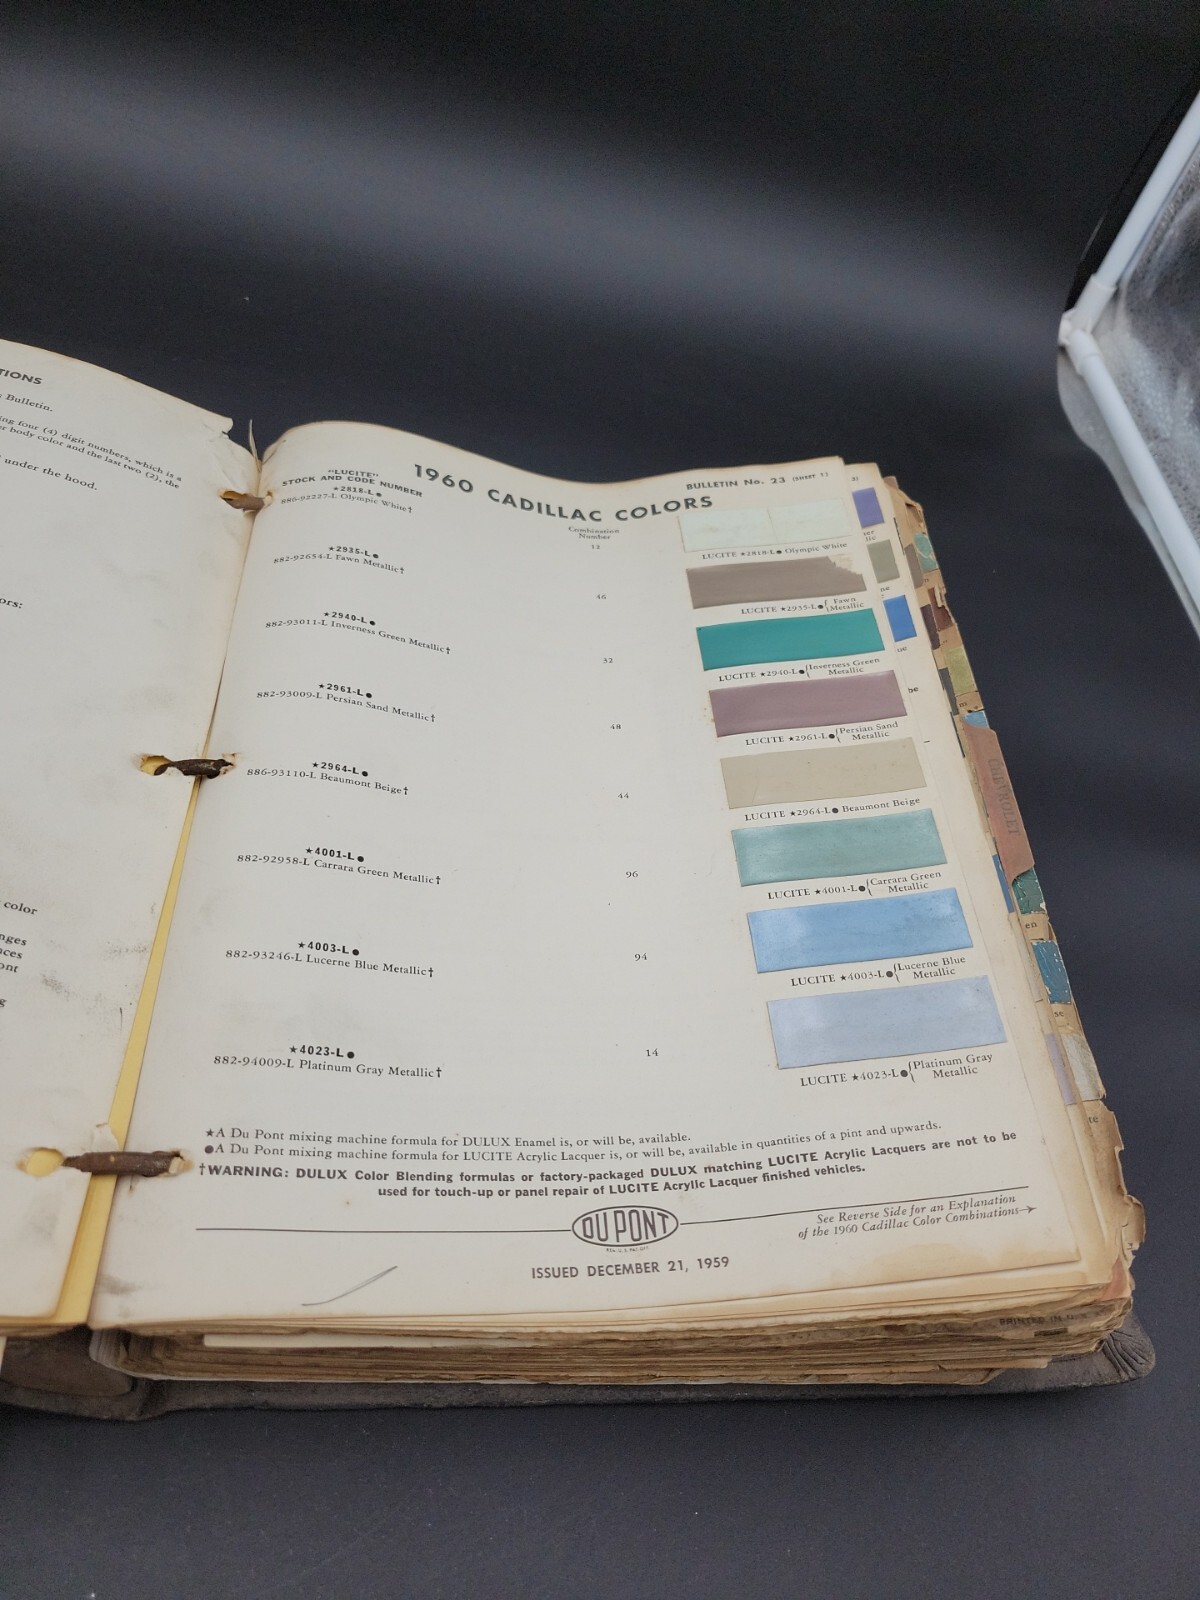 TIONS
Bulletin.
ing four (4) digit numbers, which is a
er body color and the last two (2), the
under the hood.
ors:
color
nges
nces
ont
1960 CADILLAC COLORS
BULLETIN No. 23 (SHEET 1)
"LUCITE"
STOCK AND CODE NUMBER
Combination
Number
★2818-L●
886-92227-L Olympic White†
12
LUCITE ★2818-L● Olympic White
★2935-L●
882-92654-L Fawn Metallic†
46
LUCITE ★2935-L●{Fawn
Metallic
★2940-L●
882-93011-L Inverness Green Metallic†
32
LUCITE ★2940-L●{Inverness Green
Metallic
★2961-L●
882-93009-L Persian Sand Metallic†
48
LUCITE ★2961-L●{Persian Sand
Metallic
★2964-L●
886-93110-L Beaumont Beige†
44
LUCITE ★2964-L● Beaumont Beige
★4001-L●
882-92958-L Carrara Green Metallic†
96
LUCITE ★4001-L●{Carrara Green
Metallic
★4003-L●
882-93246-L Lucerne Blue Metallic†
94
LUCITE ★4003-L●{Lucerne Blue
Metallic
★4023-L●
882-94009-L Platinum Gray Metallic†
14
LUCITE ★4023-L●{Platinum Gray
Metallic
★A Du Pont mixing machine formula for DULUX Enamel is, or will be, available.
●A Du Pont mixing machine formula for LUCITE Acrylic Lacquer is, or will be, available in quantities of a pint and upwards.
†WARNING: DULUX Color Blending formulas or factory-packaged DULUX matching LUCITE Acrylic Lacquers are not to be
used for touch-up or panel repair of LUCITE Acrylic Lacquer finished vehicles.
DU PONT
REG. U.S. PAT. OFF.
See Reverse Side for an Explanation
of the 1960 Cadillac Color Combinations→
ISSUED DECEMBER 21, 1959
CHEVROLET
ne
ue
be
en
se
te
PRINTED IN